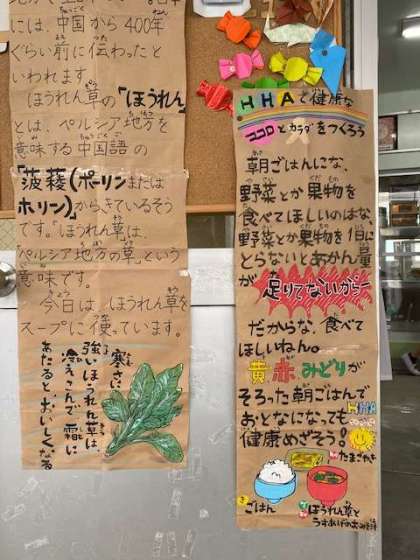 には、中国から400年
ぐらい前に伝わったと
いわれます。
ほうれん草の「ほうれん」
とは、ペルシア地方を
意味する中国語の
「菠薐(ポーリンまたは
ホリン)」からきているそう
です。「ほうれん草は、
ペルシア地方の草」という
意味です。
今日は、ほうれん草を
スープに使っています。
寒さに
強いほうれん草は
冷えこんで霜に
あたるとおいしくなる
HHAで健康な
ココロとカラダをつくろう
朝ごはんにな、
野菜とか果物を
食べてほしいのはな、
野菜とか果物を1日に
とらないとあかん量
が足りてないからー
だからな、食べて
ほしいねん。
黄赤みどりが
そろった朝ごはんで
おとなになっても
健康めざそう!
HHA
たまごやき
き
ごはん
ほうれん草と
うすあげのおみそ汁